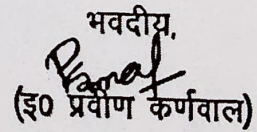 भवदीय,
(इ0 प्रवीण कर्णवाल)